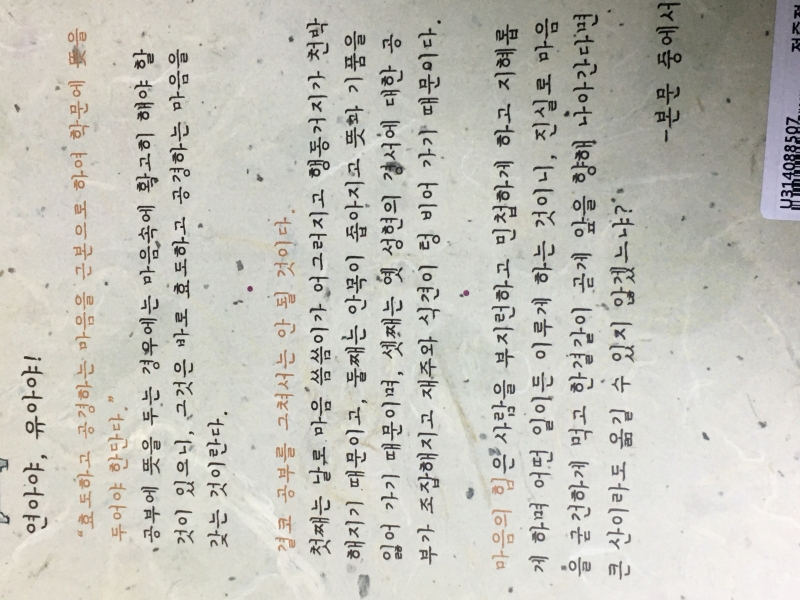 연아야, 유아야!
“효도하고 공경하는 마음을 근본으로 하여 학문에 뜻을
두어야 한단다.”
공부에 뜻을 두는 경우에는 마음속에 확고히 해야 할
것이 있으니, 그것은 바로 효도하고 공경하는 마음을
갖는 것이란다.
결코 공부를 그쳐서는 안 될 것이다.
첫째는 날로 마음 씀씀이가 어그러지고 행동거지가 천박
해지기 때문이고, 둘째는 안목이 좁아지고 뜻과 기품을
잃어 가기 때문이며, 셋째는 옛 성현의 경서에 대한 공
부가 조잡해지고 재주와 식견이 텅 비어 가기 때문이다.
마음의 힘은 사람을 부지런하고 민첩하게 하고 지혜롭
게 하며 어떤 일이든 이루게 하는 것이니, 진실로 마음
을 굳건하게 먹고 한결같이 곧게 앞을 향해 나아간다면
큰 산이라도 옮길 수 있지 않겠느냐?
-본문 중에서
U314088507